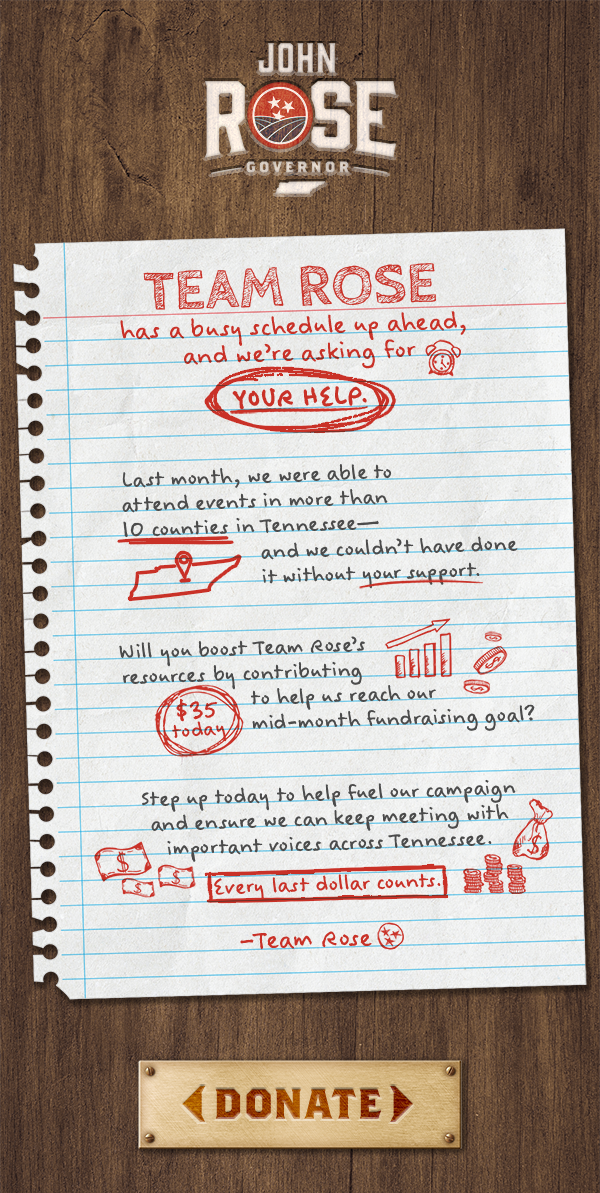 JOHN
ROSE
GOVERNOR
TEAM ROSE
has a busy schedule up ahead,
and we're asking for
YOUR HELP.
Last month, we were able to
attend events in more than
10 counties in Tennessee—
and we couldn't have done
it without your support.
Will you boost Team Rose's
resources by contributing
$35
today
to help us reach our
mid-month fundraising goal?
Step up today to help fuel our campaign
and ensure we can keep meeting with
important voices across Tennessee.
Every last dollar counts.
-Team Rose
DONATE